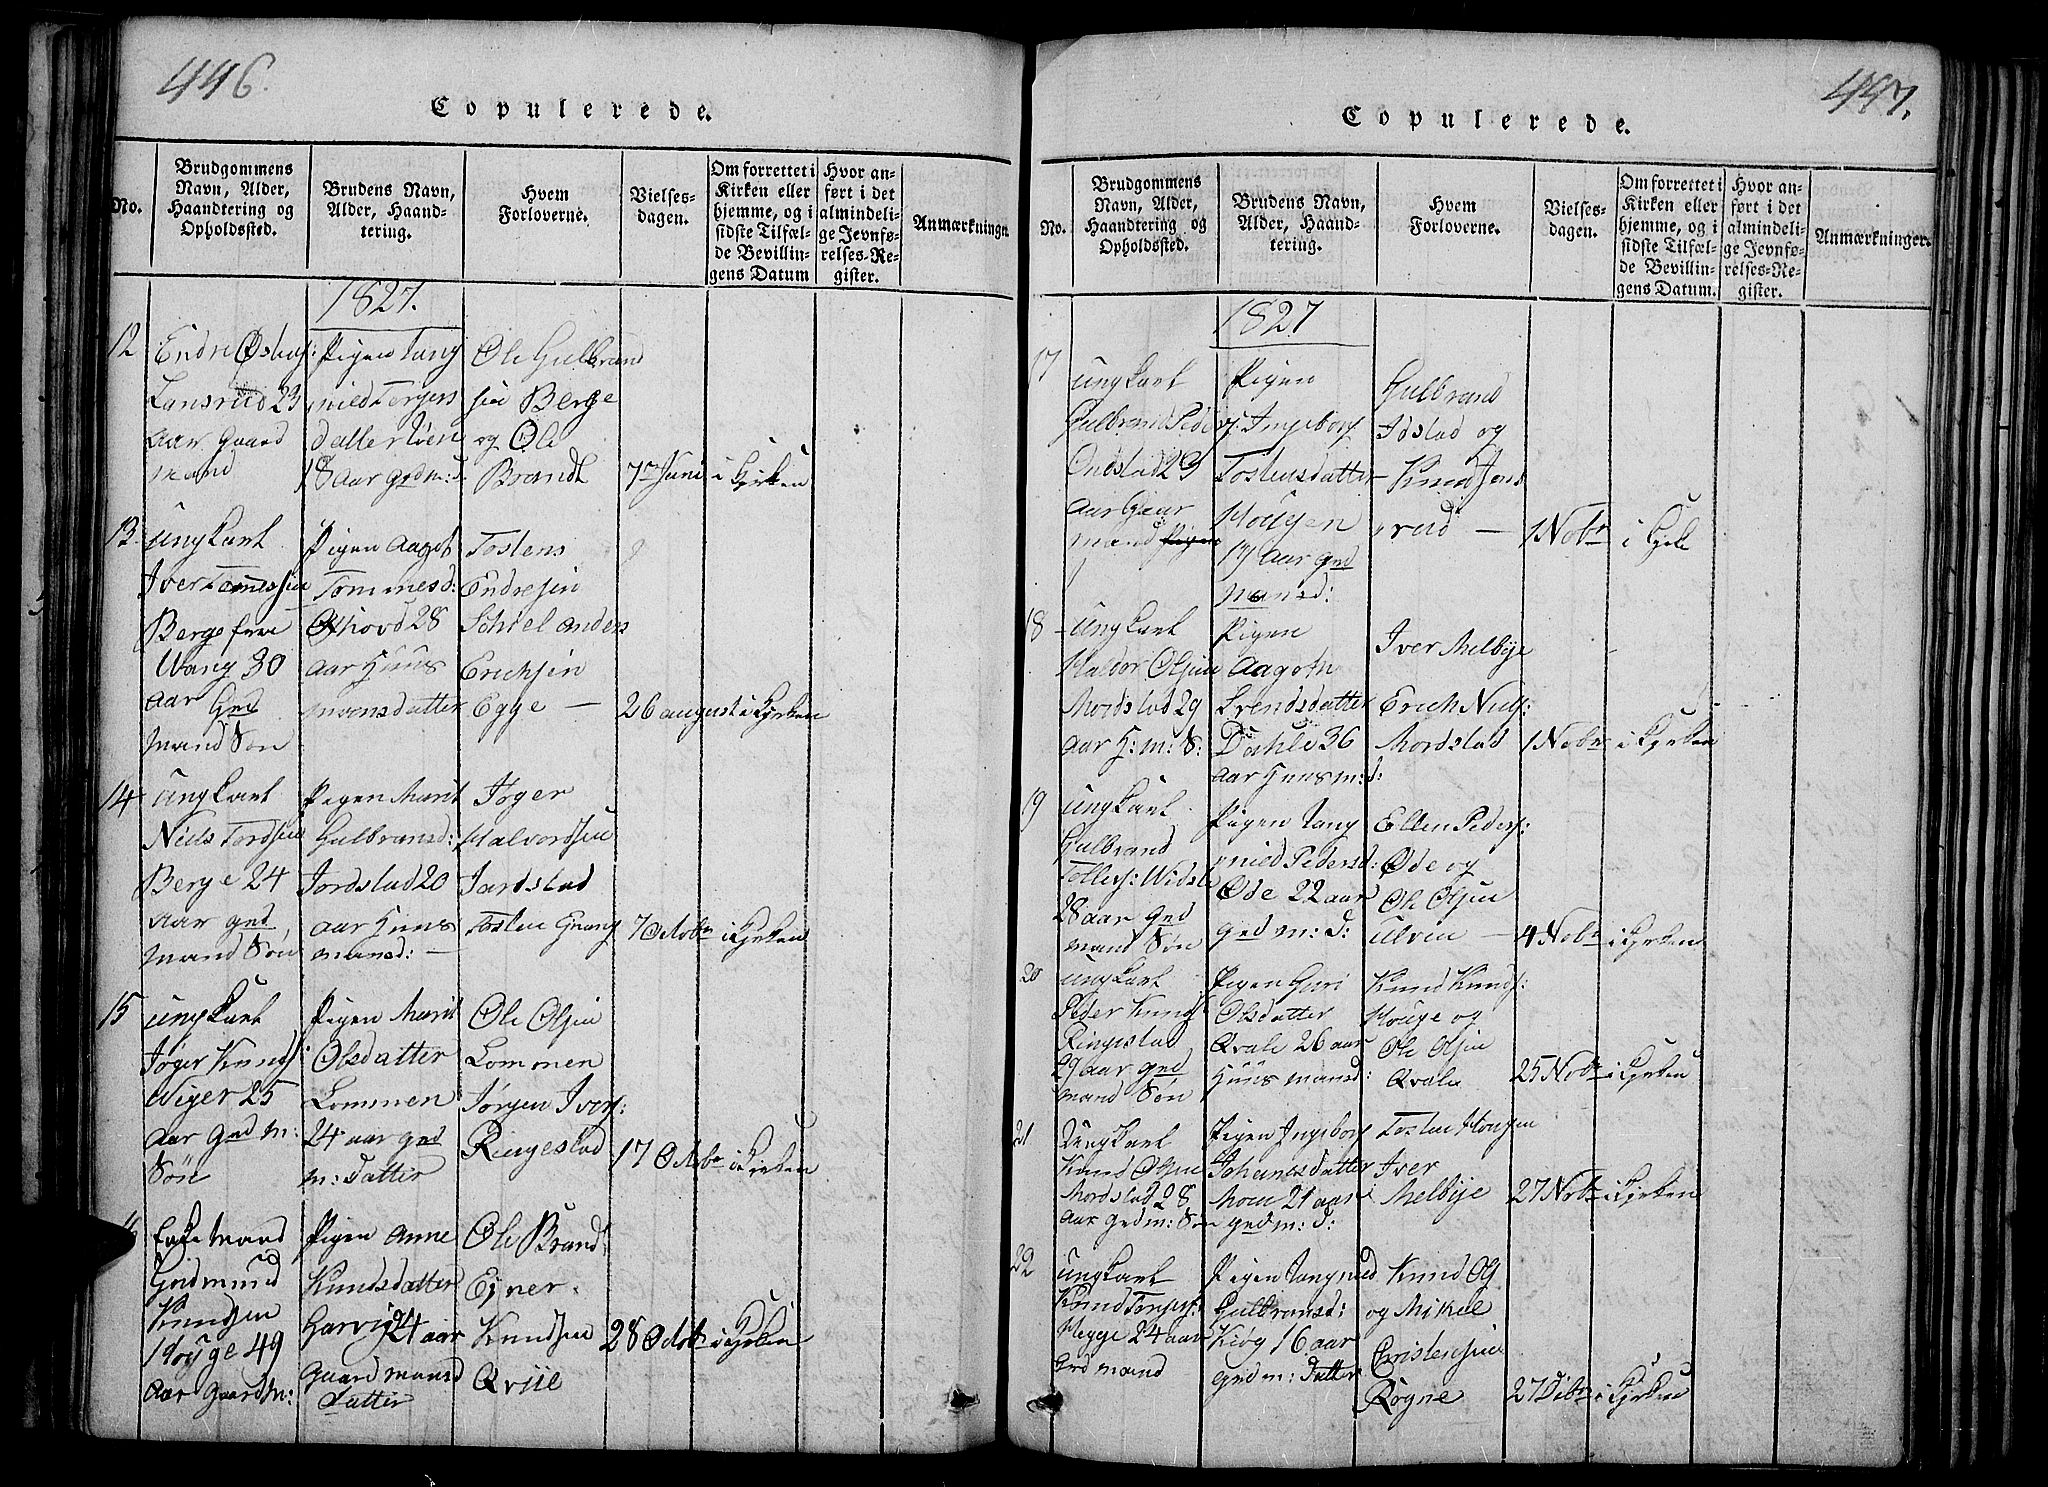 446.
Copulerede.
No.
Brudgommens
Navn, Alder,
Haandtering og
Opholdssted.
Brudens Navn,
Alder, Haand-
tering.
Hvem
Forloverne.
Vielses-
dagen.
Om forrettet i
Kirken eller
hjemme, og i
sidste Tilfæl-
de Bevillin-
gens Datum
Hvor an-
ført i det
almindeli-
ge Jevnfø-
relses-Re-
gister.
Anmærkninger
1827.
12
Endre Østens:
23
Aar Gaard
mand
Pigen Tang
nied Torgers
datter Lien
18 Aar grdm: d.
Ole Gulbrand
sen Berge
og Ole
Brandt
7de Juni
i Kirken
13.
Ungkarl
Iver Tomessen
Berge fra
Wang 30
Aar Grd
mand Søn
Pigen Aagot
Tommesd:
28
Aar Huus
mensdatter
Tostens
Endresen
Anders
Erichsen
Egge —
26 august
i Kirken
14
Ungkarl
Niels Tordsen
Berge 24
Aar grd
mand Søn
Pigen Marit
Gulbransd:
Jordstad 20
Aar Huus
mansd: —
Halvordsen
Jardstad
Tosten
7 Octobr
i Kirken
15
Ungkarl
Jøger Knuds:
Wiger 25
Aar Grd m:
Søn
Pigen Marit
Olsdatter
Lommen
24 aar grd
m: datter
Ole Olsen
Lommen
Jørgen Ivers:
Ringestad
17 Octobr
i Kirken
Enkemand
Gudmund
Knudsen
Houge 49
Aar Gaardm:
Pigen Anne
Knudsdatter
Garvig 24 aar
Gaardmands
Datter
Ole Brandt
Ejner
Knudsen
Qviie
28 Octbr
i Kirken
447.
Copulerede.
No.
Brudgommens
Navn, Alder,
Haandtering og
Opholdssted.
Brudens Navn,
Alder, Haand-
tering.
Hvem
Forloverne.
Vielses-
dagen.
Om forrettet i
Kirken eller
hjemme, og i
sidste Tilfæl-
de Bevillin-
gens Datum.
Hvor an-
ført i det
almindeli-
ge Jevnfø-
relses-Re-
gister.
Anmærkninger.
1827
17
Ungkarl
Gulbrand Peder
Onstad 23
Aar Gaar
mand
Pigen
Ingeborg
Tostensdatter
Hougen
19 Aar grd
mansd:
Gulbrand
Idstad og
Knud Jens
rud —
1 Nobr
i Kirke
18
Ungkarl
Haldor Olsen
Mordstad 29
Aar H: m: S:
Pigen
Aagoth
Svendsdatter
Dahle 36
Aar Huusm: d:
Iver Melbye
Erich Niels:
Mordstad
1 Nobr
i Kirken
19
Ungkarl
Gulbrand
Tollefs: Widste
28 aar grd
mand Søn
Pigen Tang
nied Pedersd:
Øde 22 aar
grd m: d:
Ellen Peders:
Øde og
Ole Olsen
Ulven —
4 Nobr
i Kirken
20
Ungkarl
Peder Knuds
Ringestad
29 Aar grd
mand Søn
Pigen Guri
Olsdatter
Qvale 26 aar
Huusmansd:
Knud Knuds:
Houge og
Ole Olsen
Qvale
25 Nobr
i Kirken
21
Ungkarl
Knud Olsen
Mordstad 28
Aar grdm: Søn
Pigen Ingeborg
Johanesdatter
Moen 21 aar
grdm: d:
Tosten Hougen
Iver
Melbye
27 Nobr
i Kirken
22
Ungkarl
Knud Torgers:
Hegge 24 aar
Grdmand
Pigen Tangnied
Gulbransd:
Kiøg 16 aar
grdm: datter
Knud
og Mikel
Cristensen
Rogne
27 Debr
i Kirken